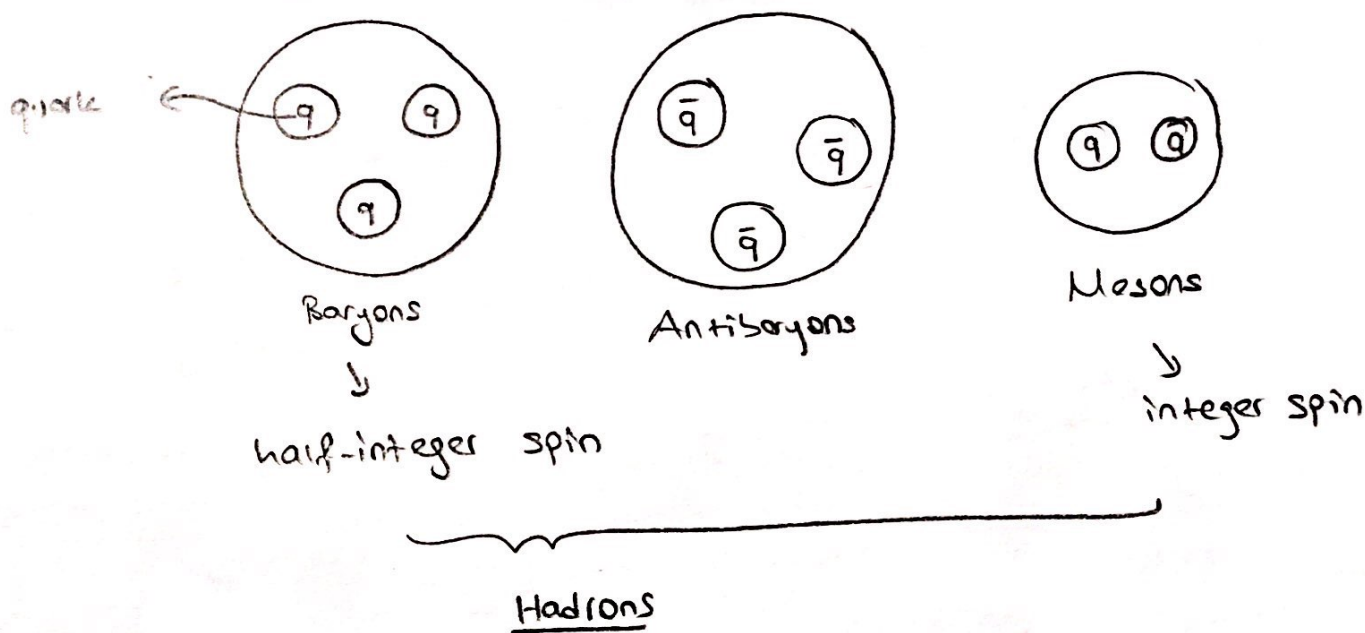 quark
q q
q
q̄ q̄
q̄
q q̄
Baryons
Antibaryons
Mesons
half-integer spin
integer spin
Hadrons